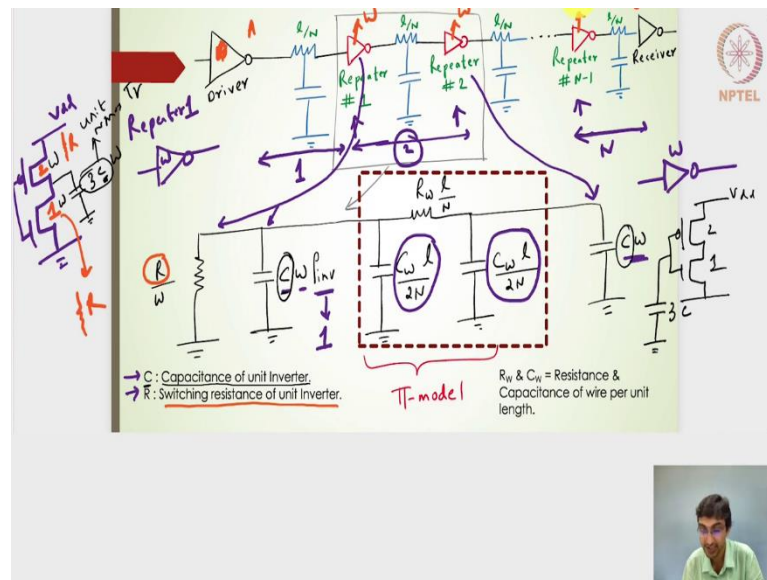 A
l/N
W
l/N
W
l/N
l/N
Driver
Repeater
# 1
Repeater
# 2
Repeater
# N-1
Receiver
NPTEL
Vdd
unit
NMOS
Tr
Repeater 1
W
R
W
3C
W
1
W
R
1
2
N
W
Vdd
2
1
3C
R/W
C W Pinv
1
Rw l/N
Cw l/2N
Cw l/2N
C W
π-model
→ C : Capacitance of unit Inverter.
→ R : Switching resistance of unit Inverter.
RW & CW = Resistance &
Capacitance of wire per unit
length.